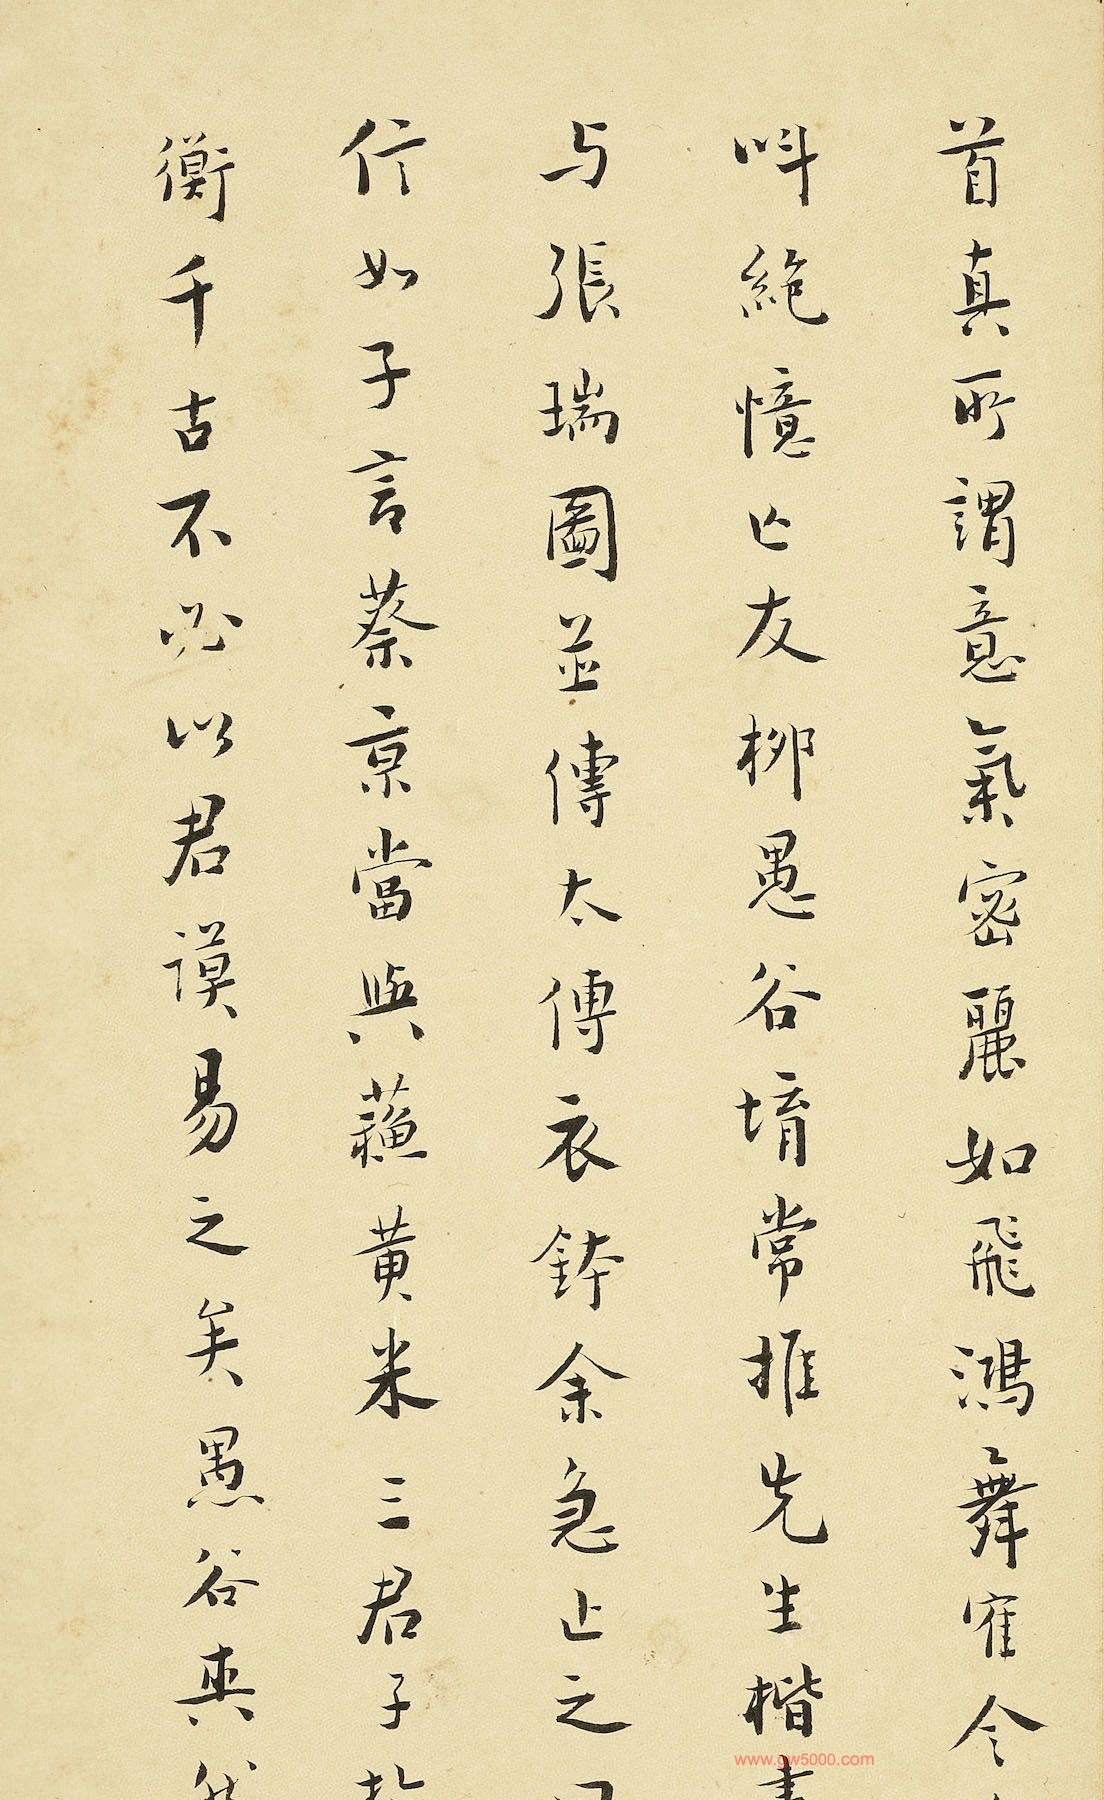 首真所謂意氣密麗如飛鴻舞隺令
叫絶憶亡友柳愚谷堉常推先生楷書
与張瑞圖並傳太傅衣鉢余急止之曰
信如子言蔡京當與蘓黄米三君子
衡千古不必以君謨易之矣愚谷爽然
www.gw5000.com